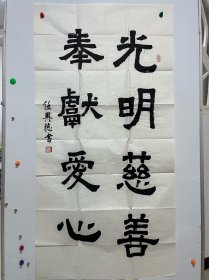 光明慈善
奉獻愛心
任興德書